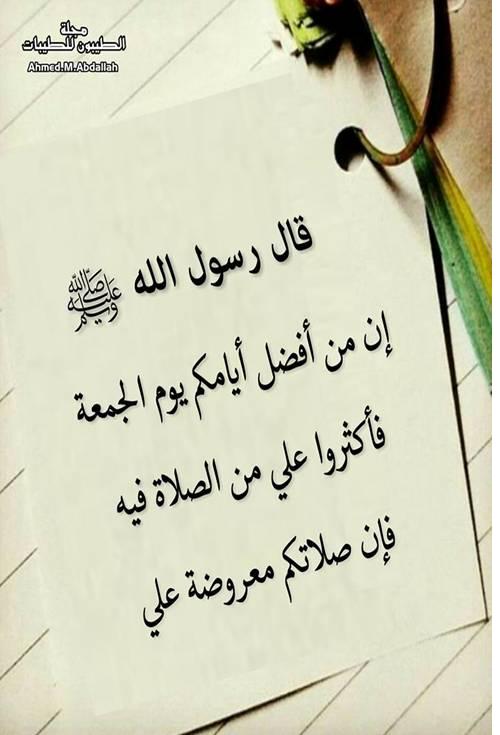 مجلة
الطيبون للطيبات
Ahmed.M.Abdallah
قال رسول الله ﷺ
إن من أفضل أيامكم يوم الجمعة
فأكثروا علي من الصلاة فيه
فإن صلاتكم معروضة علي